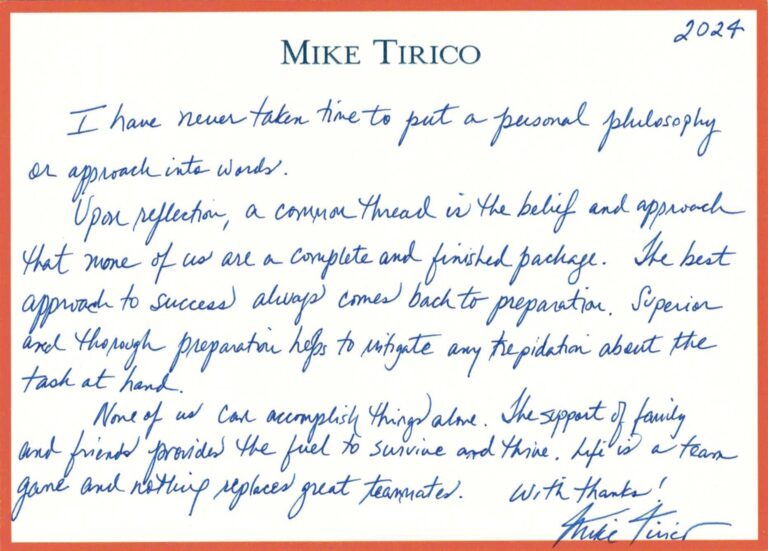 2024
MIKE TIRICO
I have never taken time to put a personal philosophy
or approach into words.
Upon reflection, a common thread is the belief and approach
that none of us are a complete and finished package. The best
approach to success always comes back to preparation. Superior
and thorough preparation helps to mitigate any trepidation about the
task at hand.
None of us can accomplish things alone. The support of family
and friends provides the fuel to survive and thrive. Life is a team
game and nothing replaces great teammates. With thanks!
Mike Tirico